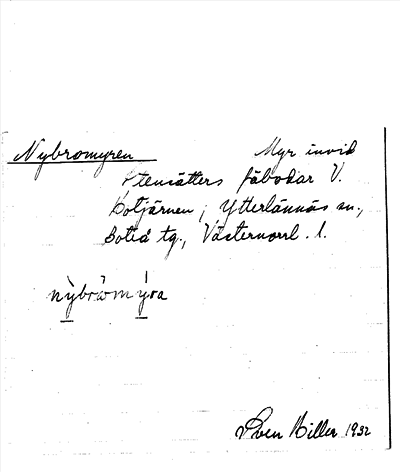 Nybromyren Myr invid
Stensätters fäbodar V.
Lotjärnen, Ytterlännäs sn.,
Boteå tg., Västernorrl. l.
nỳbrömýra
Sven Hiller 1932